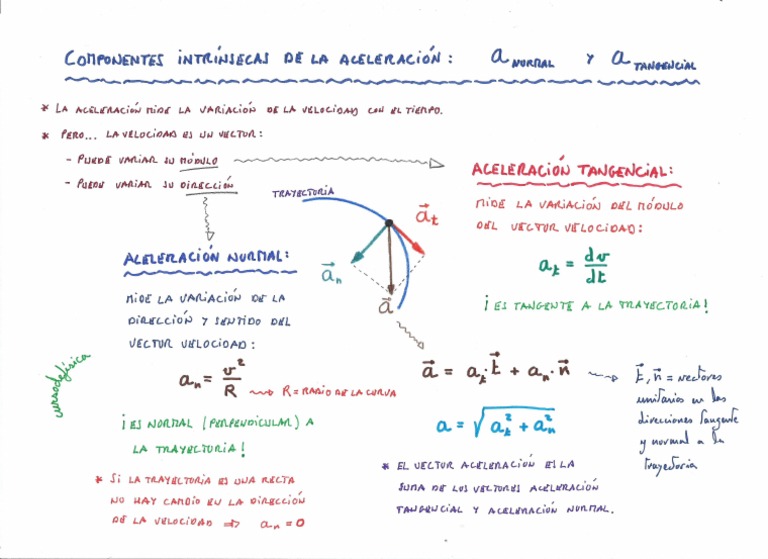 COMPONENTES INTRÍNSECAS DE LA ACELERACIÓN: a NORMAL Y a TANGENCIAL
* LA ACELERACIÓN MIDE LA VARIACIÓN DE LA VELOCIDAD CON EL TIEMPO.
* PERO... LA VELOCIDAD ES UN VECTOR:
- PUEDE VARIAR SU MÓDULO
- PUEDE VARIAR SU DIRECCIÓN
ACELERACIÓN TANGENCIAL:
MIDE LA VARIACIÓN DEL MÓDULO
DEL VECTOR VELOCIDAD:
a_t = dv/dt
¡ES TANGENTE A LA TRAYECTORIA!
TRAYECTORIA
a⃗_t
a⃗_n
a⃗
ACELERACIÓN NORMAL:
MIDE LA VARIACIÓN DE LA
DIRECCIÓN Y SENTIDO DEL
VECTOR VELOCIDAD:
a_n = v²/R
R = RADIO DE LA CURVA
¡ES NORMAL (PERPENDICULAR) A
LA TRAYECTORIA!
* SI LA TRAYECTORIA ES UNA RECTA
NO HAY CAMBIO EN LA DIRECCIÓN
DE LA VELOCIDAD ⇒ a_n = 0
cursodefísica
a⃗ = a_t·t⃗ + a_n·n⃗
a = √(a_t² + a_n²)
t⃗, n⃗ = vectores
unitarios en las
direcciones tangente
y normal a la
trayectoria
* EL VECTOR ACELERACIÓN ES LA
SUMA DE LOS VECTORES ACELERACIÓN
TANGENCIAL Y ACELERACIÓN NORMAL.